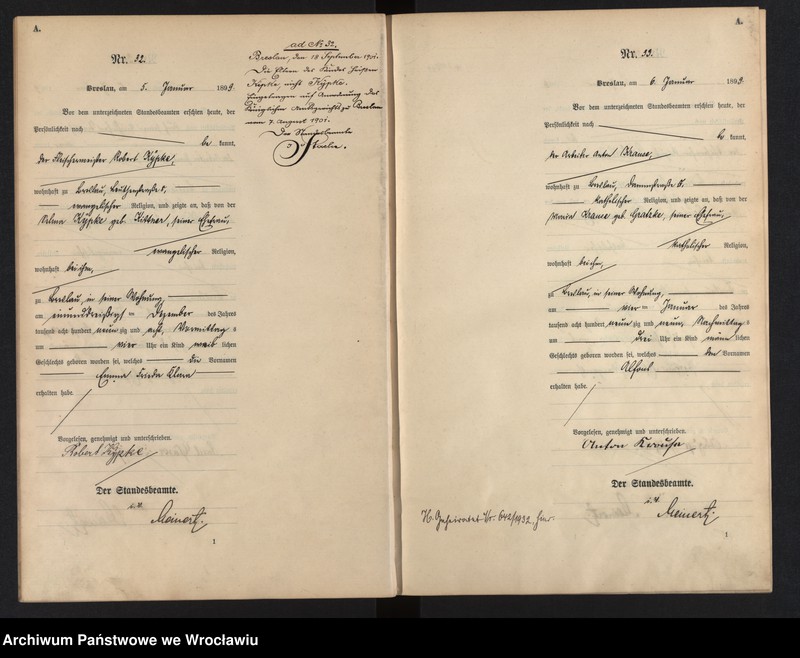 A.
Nr. 32.
Breslau, am 5. Januar 1899.
Vor dem unterzeichneten Standesbeamten erschien heute, der
Persönlichkeit nach
be kannt,
der Fleischermeister Robert Kypke,
wohnhaft zu Breslau,
evangelischer Religion, und zeigte an, daß von der
Selma Kypke geb. Kittner, seiner Ehefrau,
evangelischer Religion,
wohnhaft bei ihm,
zu Breslau, in seiner Wohnung,
am einunddreißigsten Dezember des Jahres
tausend acht hundert neun zig und acht, Vormittag s
um vier Uhr ein Kind weib lichen
Geschlechts geboren worden sei, welches die Vornamen
Emma Frieda Klara
erhalten habe.
Vorgelesen, genehmigt und unterschrieben.
Robert Kypke
Der Standesbeamte.
i.V.
Meinert.
1
ad № 32.
Breslau, den 18 September 1901.
Die Eltern des Kindes heißen
Kipke, nicht Kypke.
Eingetragen auf Anordnung des
Königlichen Amtsgerichts zu Breslau
vom 7. August 1901.
Der Standesbeamte
A.
Nr. 33.
Breslau, am 6. Januar 1899.
Vor dem unterzeichneten Standesbeamten erschien heute, der
Persönlichkeit nach
be kannt,
der Arbeiter Anton Krause,
wohnhaft zu Breslau, Dammstraße 5.
katholischer Religion, und zeigte an, daß von der
Maria Krause geb. Gratzke, seiner Ehefrau,
katholischer Religion,
wohnhaft bei ihm,
zu Breslau, in seiner Wohnung,
am vierten Januar des Jahres
tausend acht hundert neun zig und neun, Nachmittag s
um drei Uhr ein Kind männ lichen
Geschlechts geboren worden sei, welches den Vornamen
Alfons
erhalten habe.
Vorgelesen, genehmigt und unterschrieben.
Anton Krause
Der Standesbeamte.
i.V.
Meinert.
H. Geheiratet Nr. 642/1932, hier.
1
Archiwum Państwowe we Wrocławiu